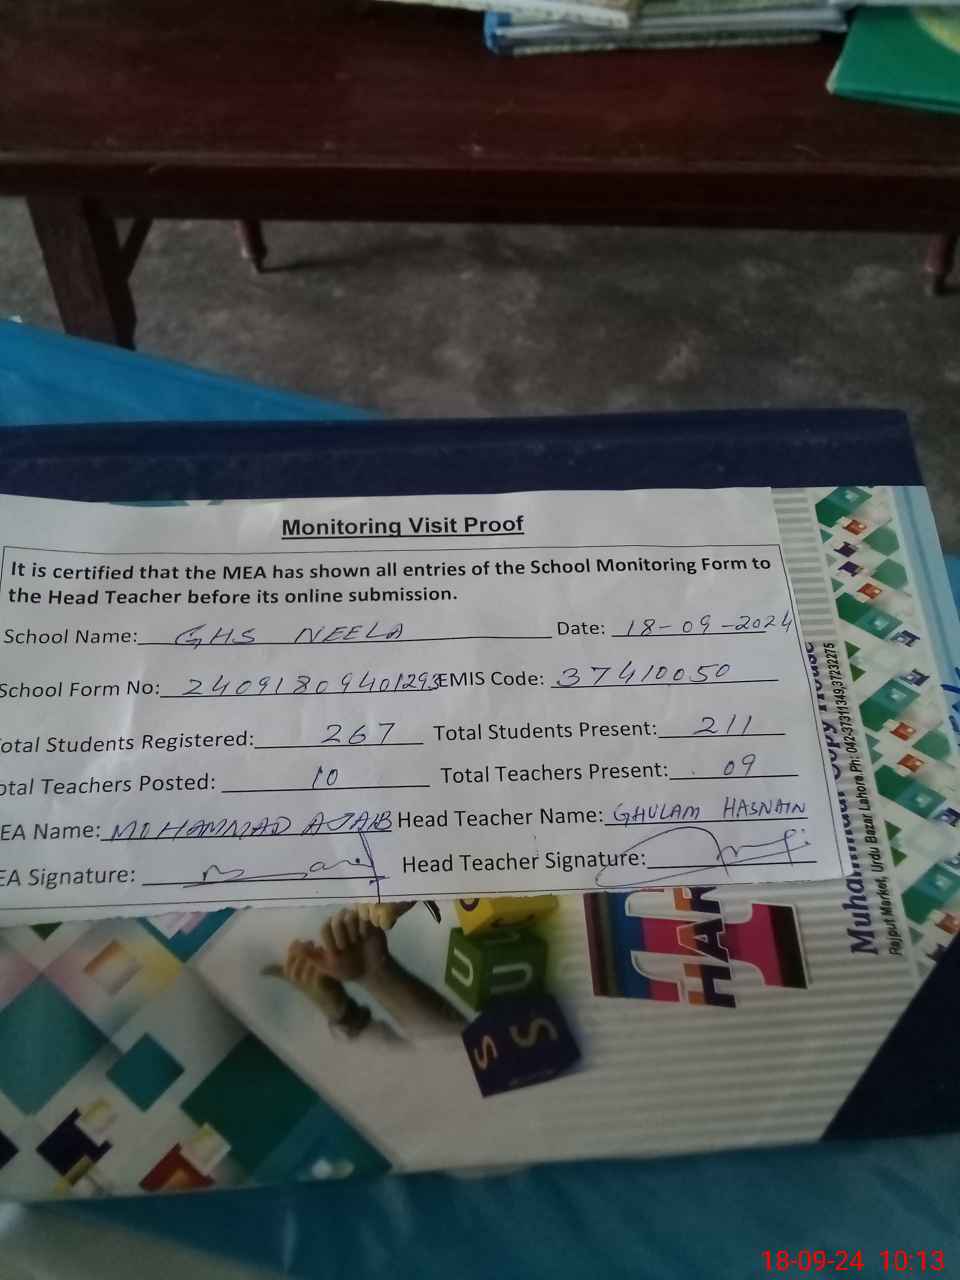 Monitoring Visit Proof
It is certified that the MEA has shown all entries of the School Monitoring Form to
the Head Teacher before its online submission.
School Name: GHS NEELA Date: 18-09-2024
School Form No: 24091809401293 EMIS Code: 37410050
otal Students Registered: 267 Total Students Present: 211
otal Teachers Posted: 10 Total Teachers Present: 09
EA Name: MOHAMMAD AJAIB Head Teacher Name: GHULAM HASNAIN
EA Signature: Head Teacher Signature:
Copy House
Rajput Market, Urdu Bazar Lahore.Ph: 042-37311349,37232275
HAR
U
U
S
S
18-09-24 10:13